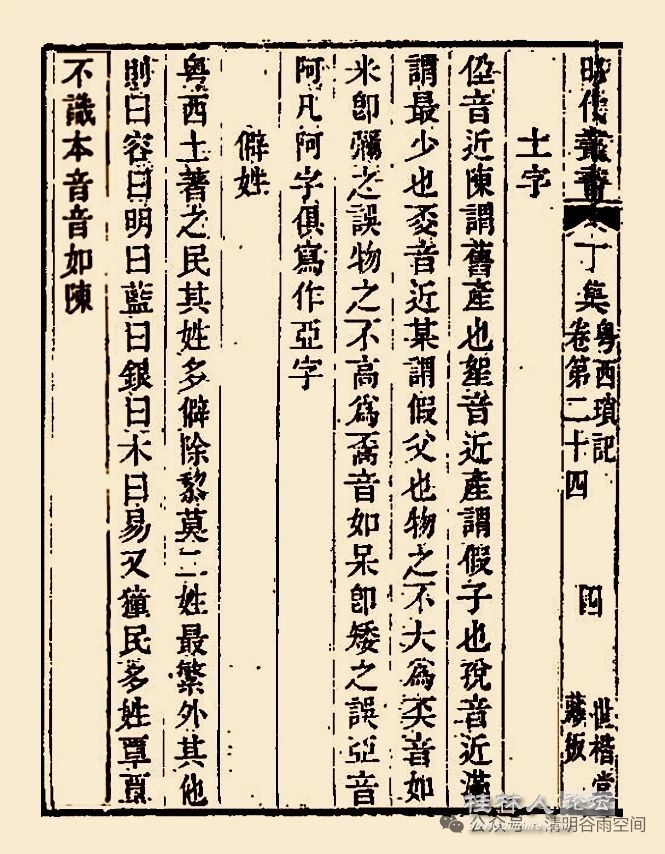 昭代叢書 丁集 粤西瑣記 卷第二十四 四 世楷堂 藏板
土字
音近陳謂舊產也音近產謂假子也音近滿
謂最少也音近某謂假父也物之不大爲奀音如
米卽彌之誤物之不高爲音如呆卽矮之誤亞音
阿凡阿字俱寫作亞字
僻姓
粤西土著之民其姓多僻除黎莫二姓最繁外其他
則曰容曰明曰藍曰銀曰木曰易又獞民多姓覃覃
不識本音音如陳
桂林人论坛
公众号 · 清明谷雨空间